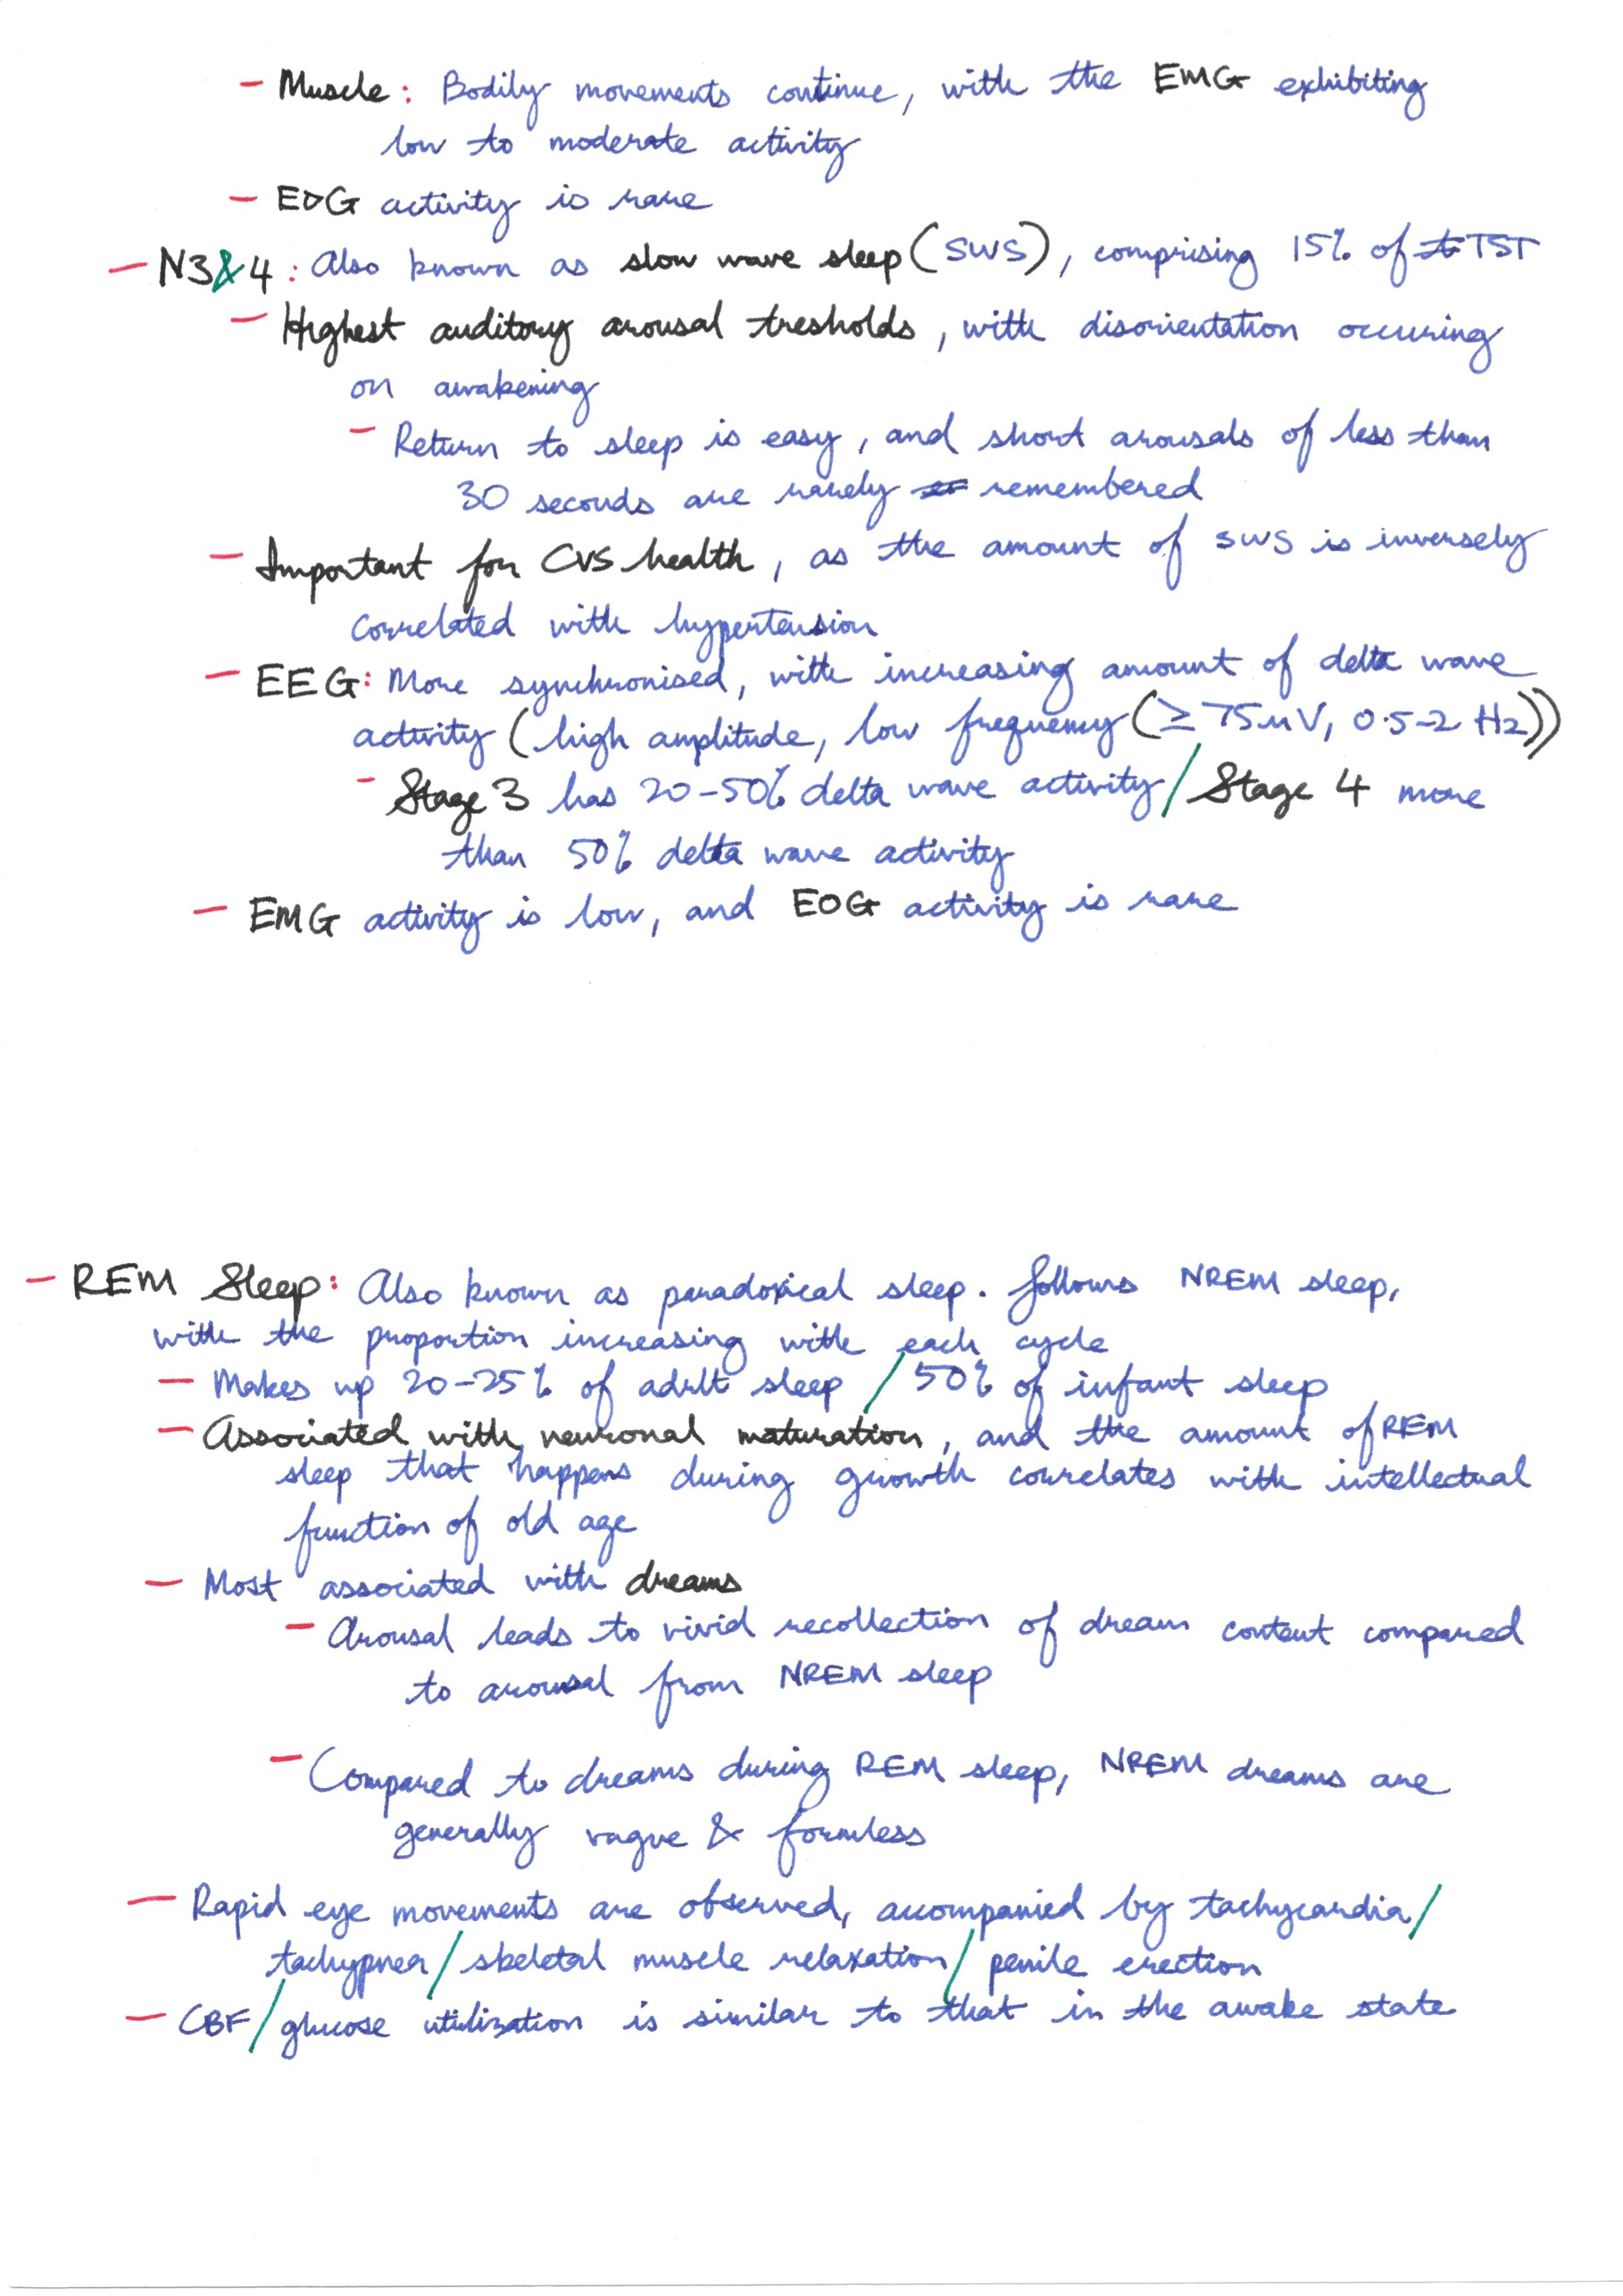 - Muscle: Bodily movements continue, with the EMG exhibiting
low to moderate activity
- EOG activity is rare
- N3&4: Also known as slow wave sleep (SWS), comprising 15% of TST
- Highest auditory arousal tresholds, with disorientation occuring
on awakening
- Return to sleep is easy, and short arousals of less than
30 seconds are rarely remembered
- Important for CVS health, as the amount of SWS is inversely
correlated with hypertension
- EEG: More synchronised, with increasing amount of delta wave
activity (high amplitude, low frequency (≥75uV, 0.5-2 Hz))
- Stage 3 has 20-50% delta wave activity / Stage 4 more
than 50% delta wave activity
- EMG activity is low, and EOG activity is rare
- REM Sleep: Also known as paradoxical sleep. Follows NREM sleep,
with the proportion increasing with each cycle
- Makes up 20-25% of adult sleep / 50% of infant sleep
- Associated with neuronal maturation, and the amount of REM
sleep that happens during growth correlates with intellectual
function of old age
- Most associated with dreams
- Arousal leads to vivid recollection of dream content compared
to arousal from NREM sleep
- Compared to dreams during REM sleep, NREM dreams are
generally vague & formless
- Rapid eye movements are observed, accompanied by tachycardia/
tachypnea/skeletal muscle relaxation/penile erection
- CBF/glucose utilization is similar to that in the awake state